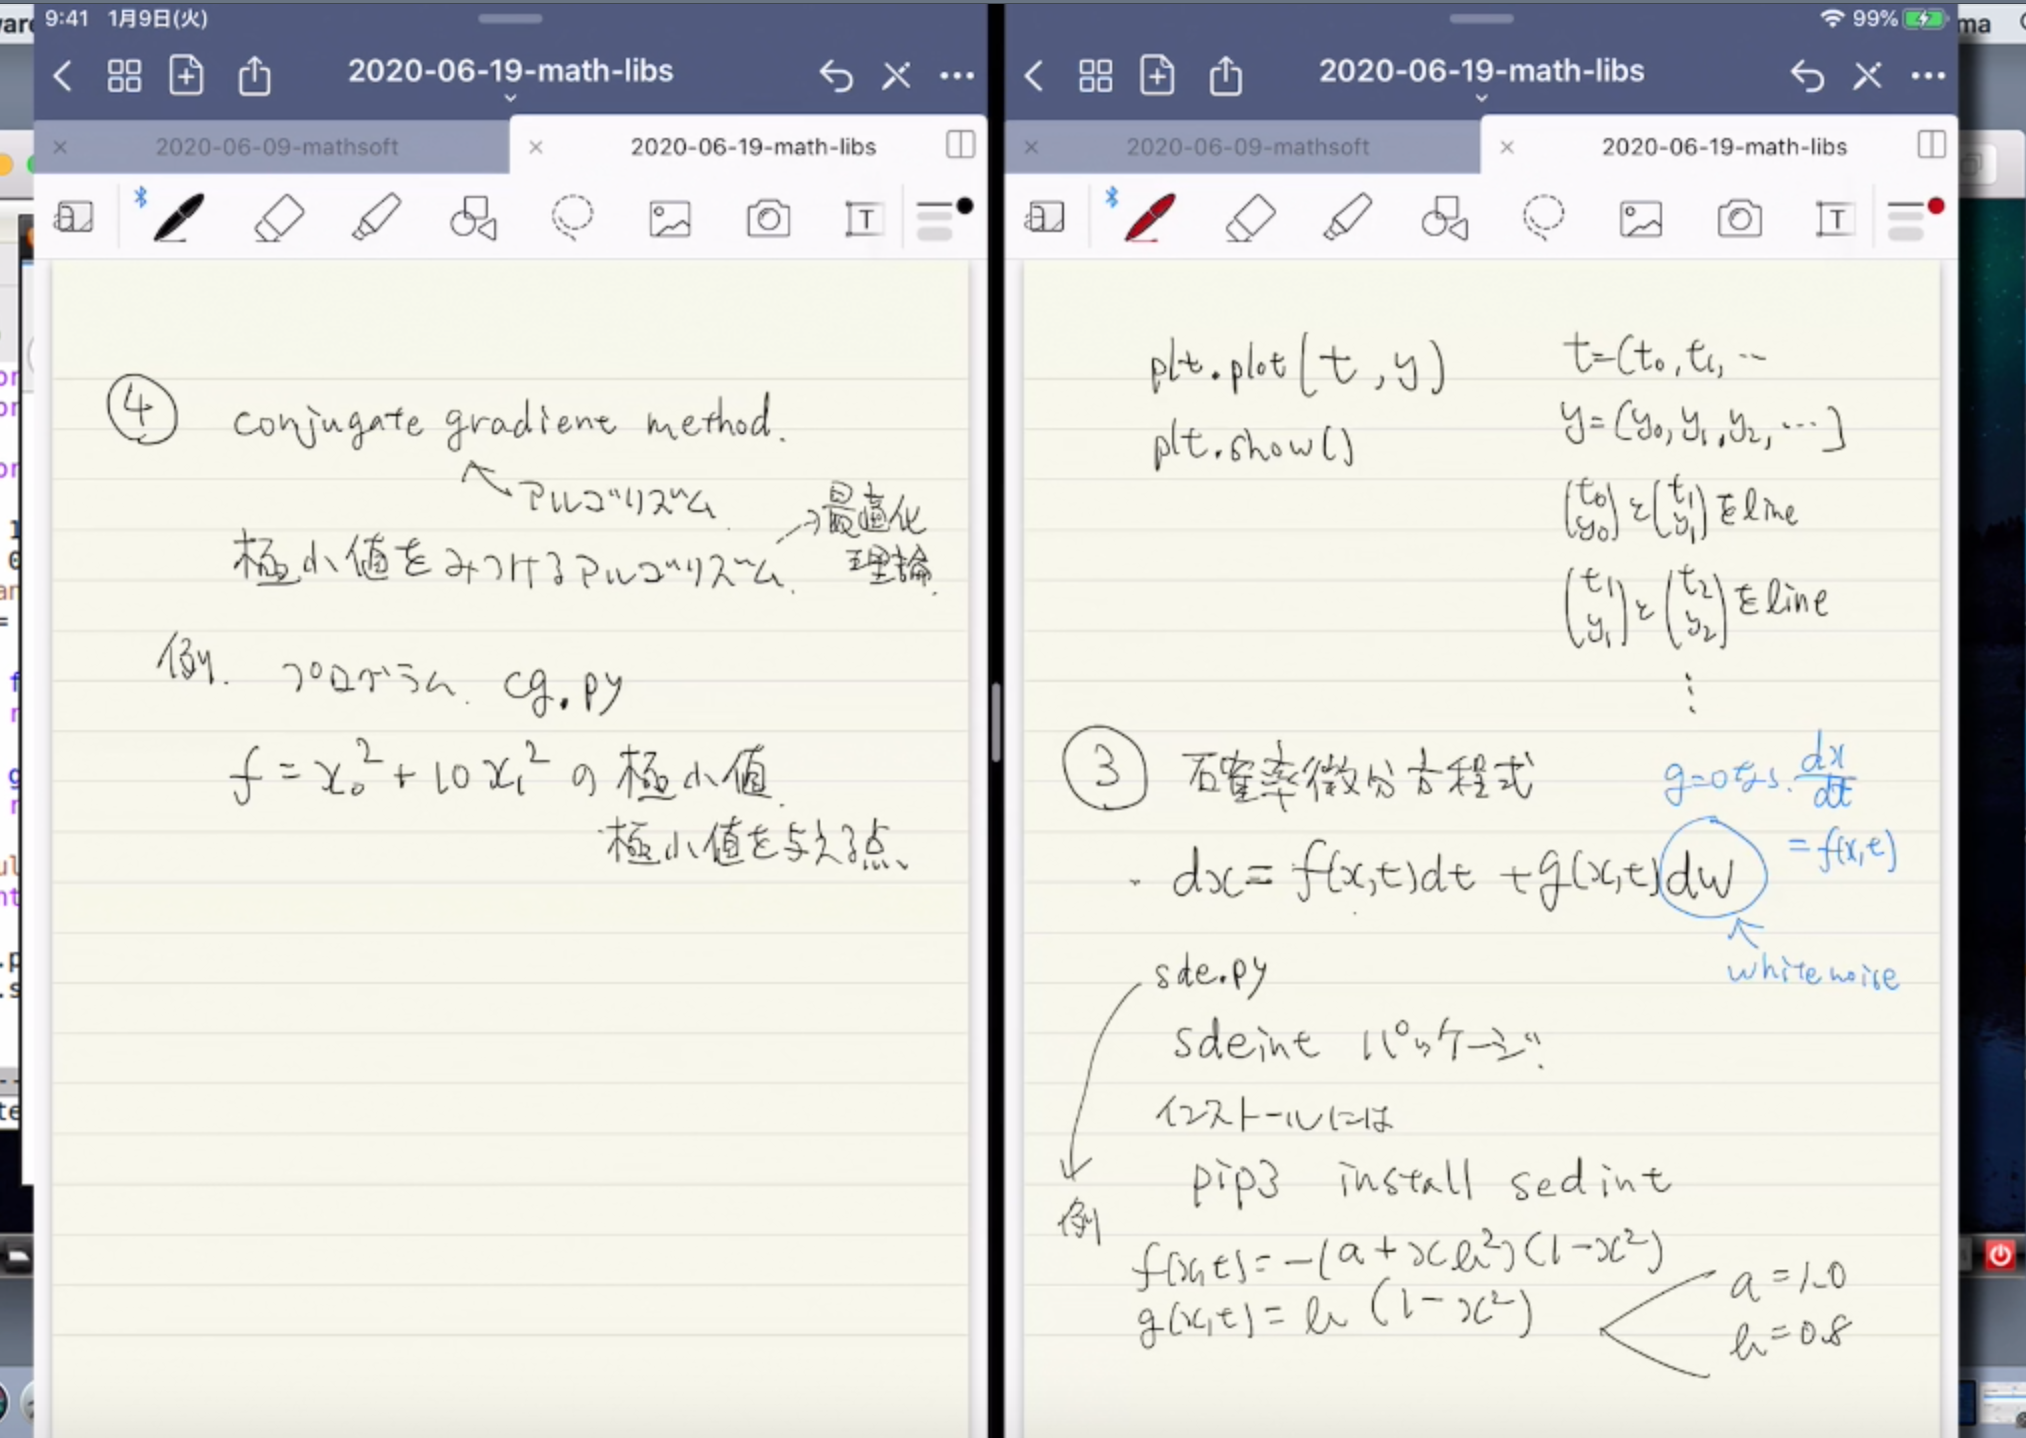 9:41 1月9日(火)
99%
2020-06-19-math-libs
2020-06-09-mathsoft
2020-06-19-math-libs
④ conjugate gradient method.
アルゴリズム
極小値をみつけるアルゴリズム.
最適化
理論.
例. プログラム. cg.py
f = x₀² + 10x₁² の 極小値.
極小値を与える点、
2020-06-19-math-libs
2020-06-09-mathsoft
2020-06-19-math-libs
plt.plot(t, y)
plt.show()
t=(t₀, t₁, …
y=(y₀, y₁, y₂, …)
(t₀ y₀)と(t₁ y₁)をline
(t₁ y₁)と(t₂ y₂)をline
⋮
③ 確率微分方程式
g=0なら. dx/dt
= f(x,t)
dx = f(x,t)dt + g(x,t)dw
white noise
sde.py
sdeint パッケージ.
インストールには
pip3 install sedint
例
f(x,t) = -(a + x b²)(1-x²)
g(x,t) = b (1-x²)
a = 1.0
b = 0.8